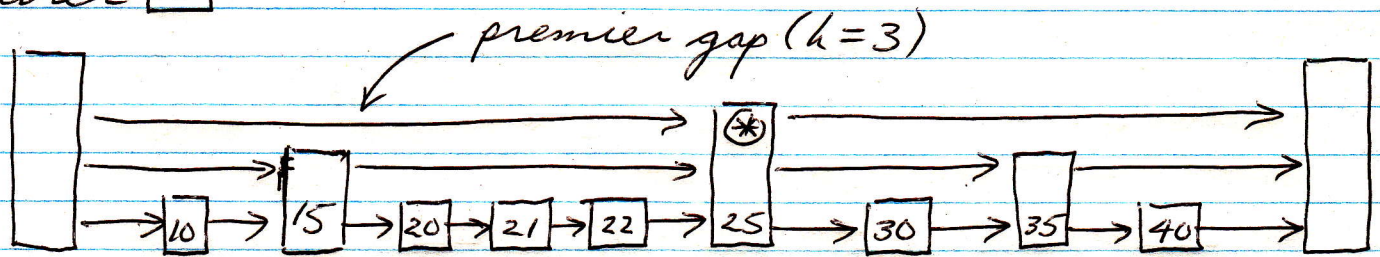 premier gap (h=3)
*
10 15 20 21 22 25 30 35 40